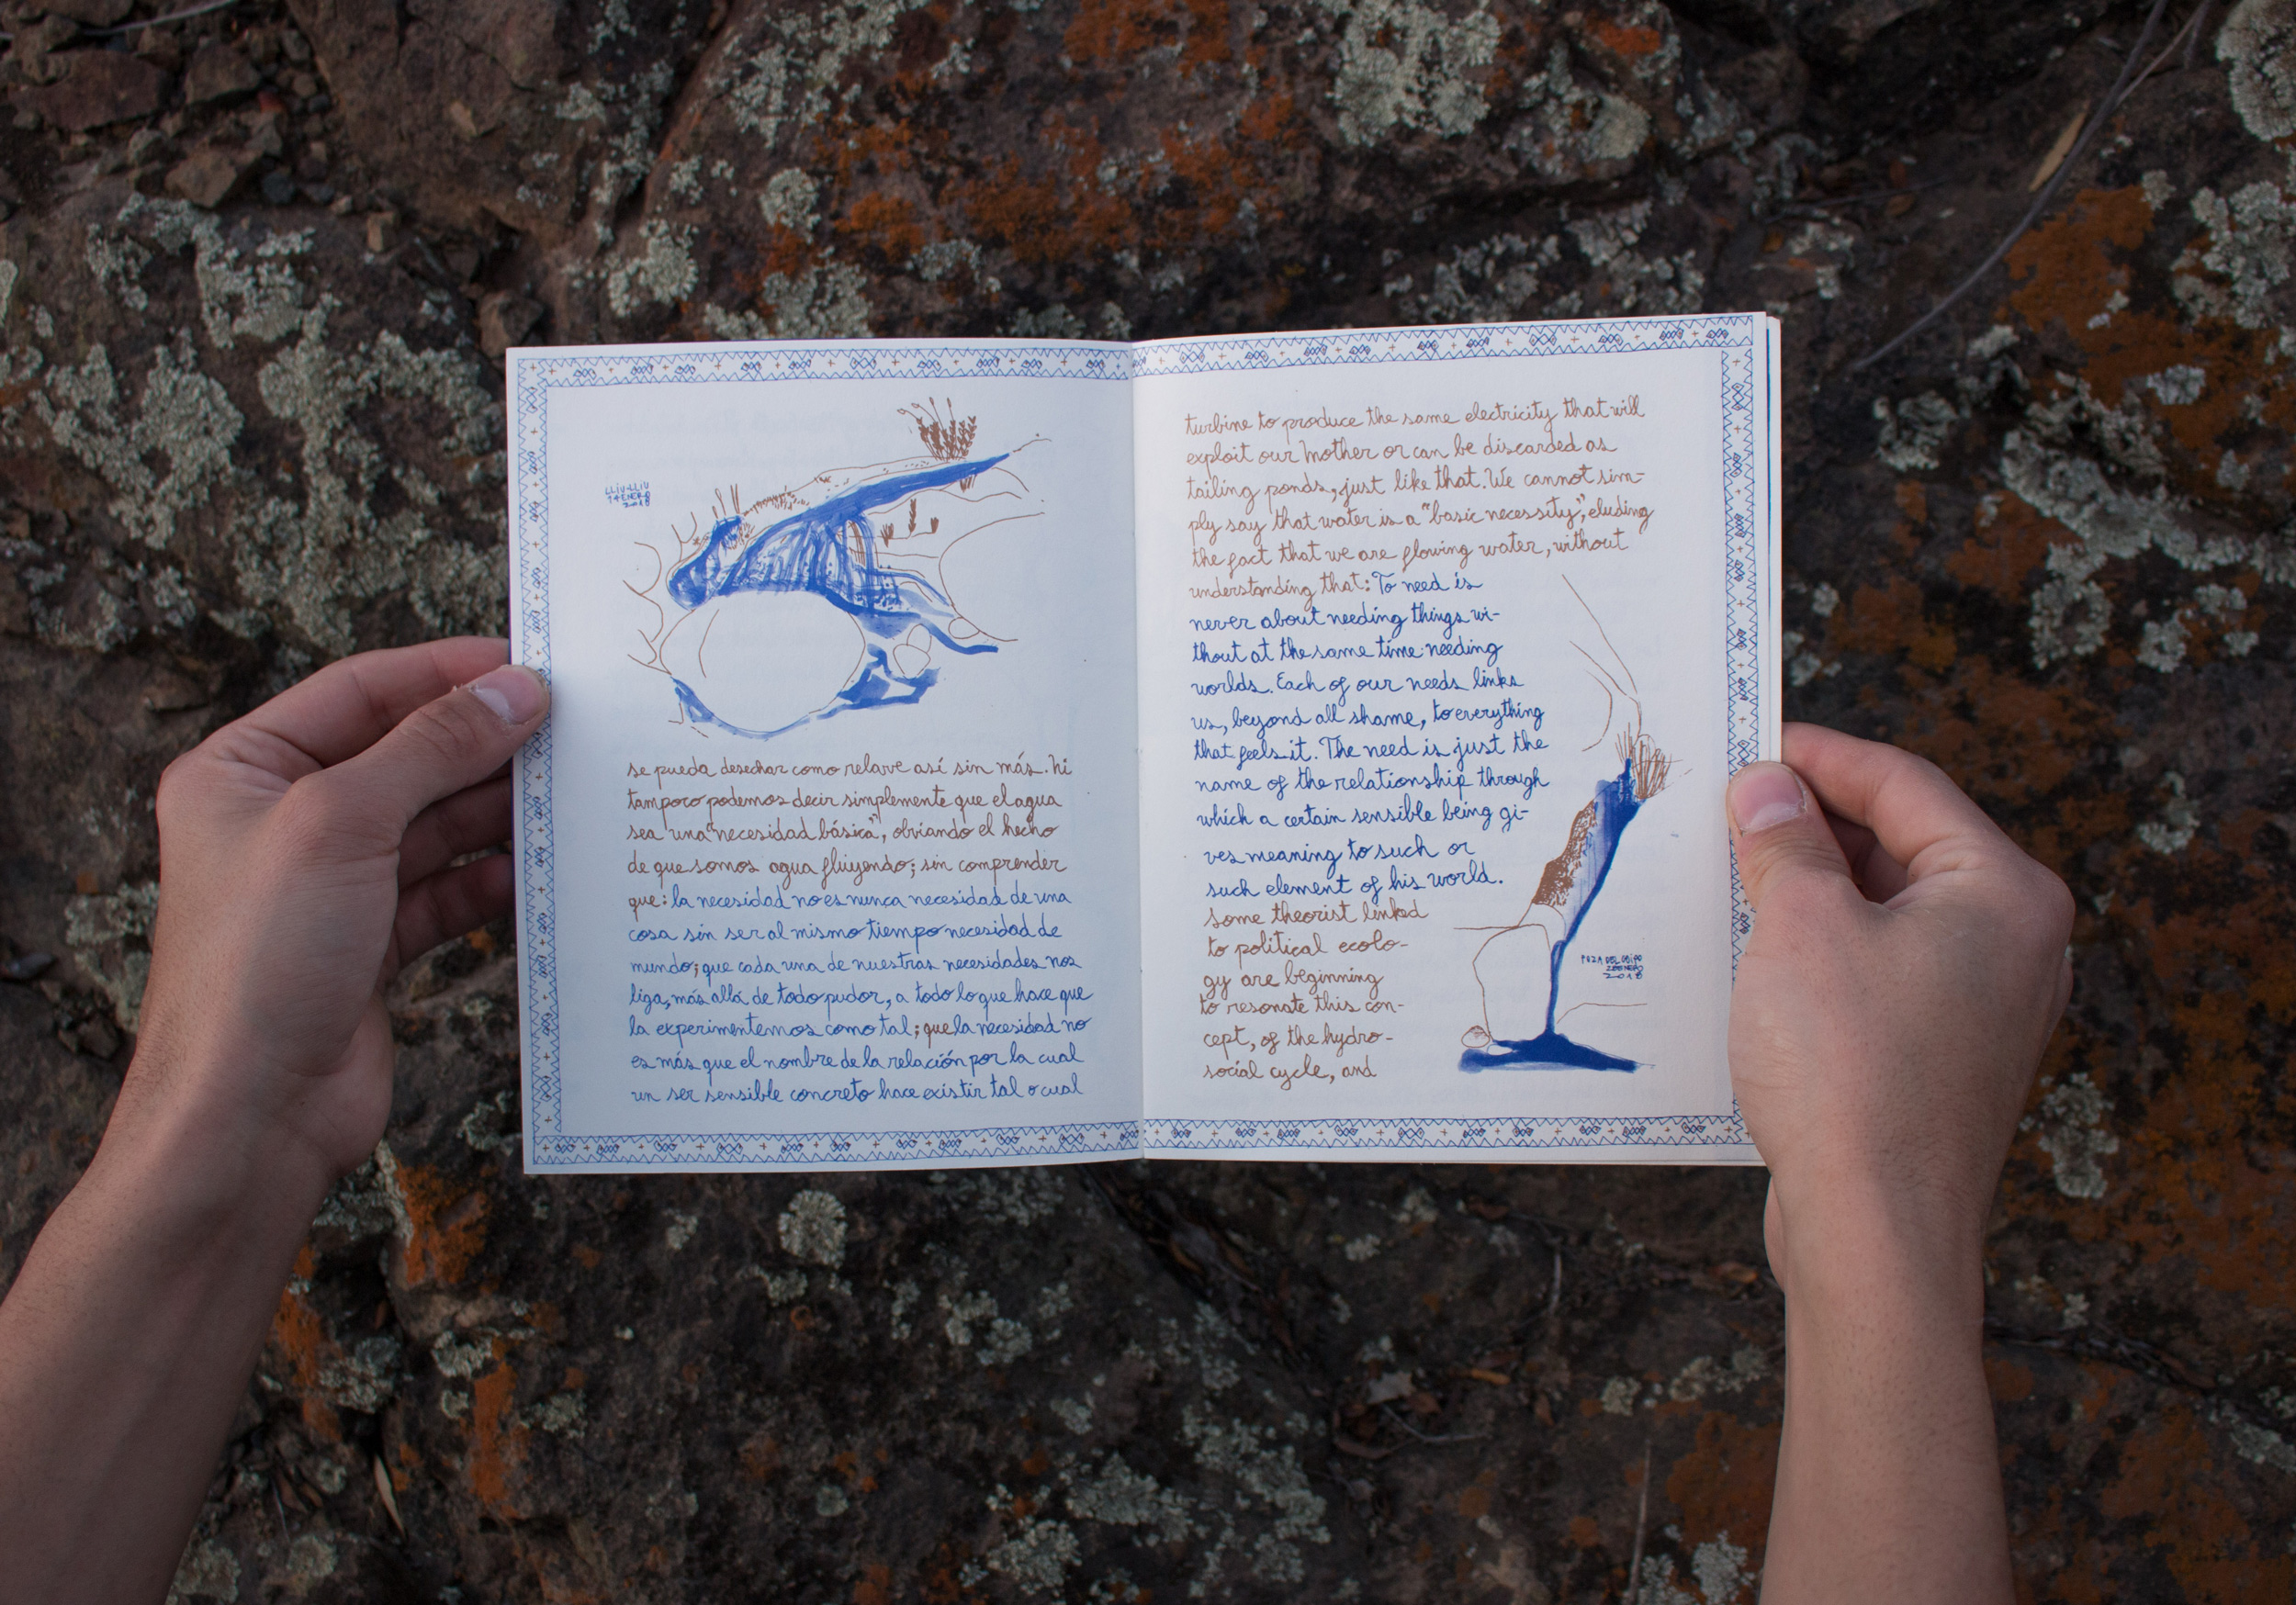 LLIU-LLIU
14 ENERO
2018
se pueda desechar como relave así sin más. Ni
tampoco podemos decir simplemente que el agua
sea una "necesidad básica", obviando el hecho
de que somos agua fluyendo; sin comprender
que: la necesidad no es nunca necesidad de una
cosa sin ser al mismo tiempo necesidad de
mundo; que cada una de nuestras necesidades nos
liga, más allá de todo pudor, a todo lo que hace que
la experimentemos como tal; que la necesidad no
es más que el nombre de la relación por la cual
un ser sensible concreto hace existir tal o cual
turbine to produce the same electricity that will
exploit our Mother or can be discarded as
tailing ponds, just like that. We cannot sim-
ply say that water is a "basic necessity", eluding
the fact that we are flowing water, without
understanding that: To need is
never about needing things wi-
thout at the same time needing
worlds. Each of our needs links
us, beyond all shame, to everything
that feels it. The need is just the
name of the relationship through
which a certain sensible being gi-
ves meaning to such or
such element of his world.
Some theorist linked
to political ecolo-
gy are beginning
to resonate this con-
cept, of the hydro-
social cycle, and
POZA DEL
ENERO
2018